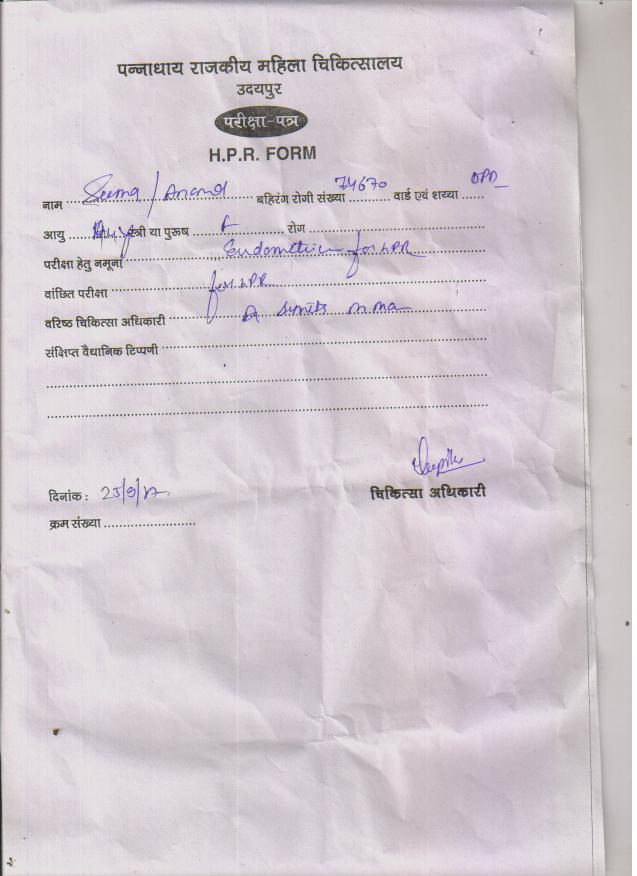 पन्नाधाय राजकीय महिला चिकित्सालय
उदयपुर
परीक्षा-पत्र
H.P.R. FORM
नाम Seema / Anand बहिरंग रोगी संख्या 74670 वार्ड एवं शय्या OPD
आयु स्त्री या पुरूष F रोग
परीक्षा हेतु नमूना Endometrium for HPR
वांछित परीक्षा for HPR
वरिष्ठ चिकित्सा अधिकारी Dr
संक्षिप्त वैधानिक टिप्पणी
दिनांक : 25/9/17
चिकित्सा अधिकारी
क्रम संख्या